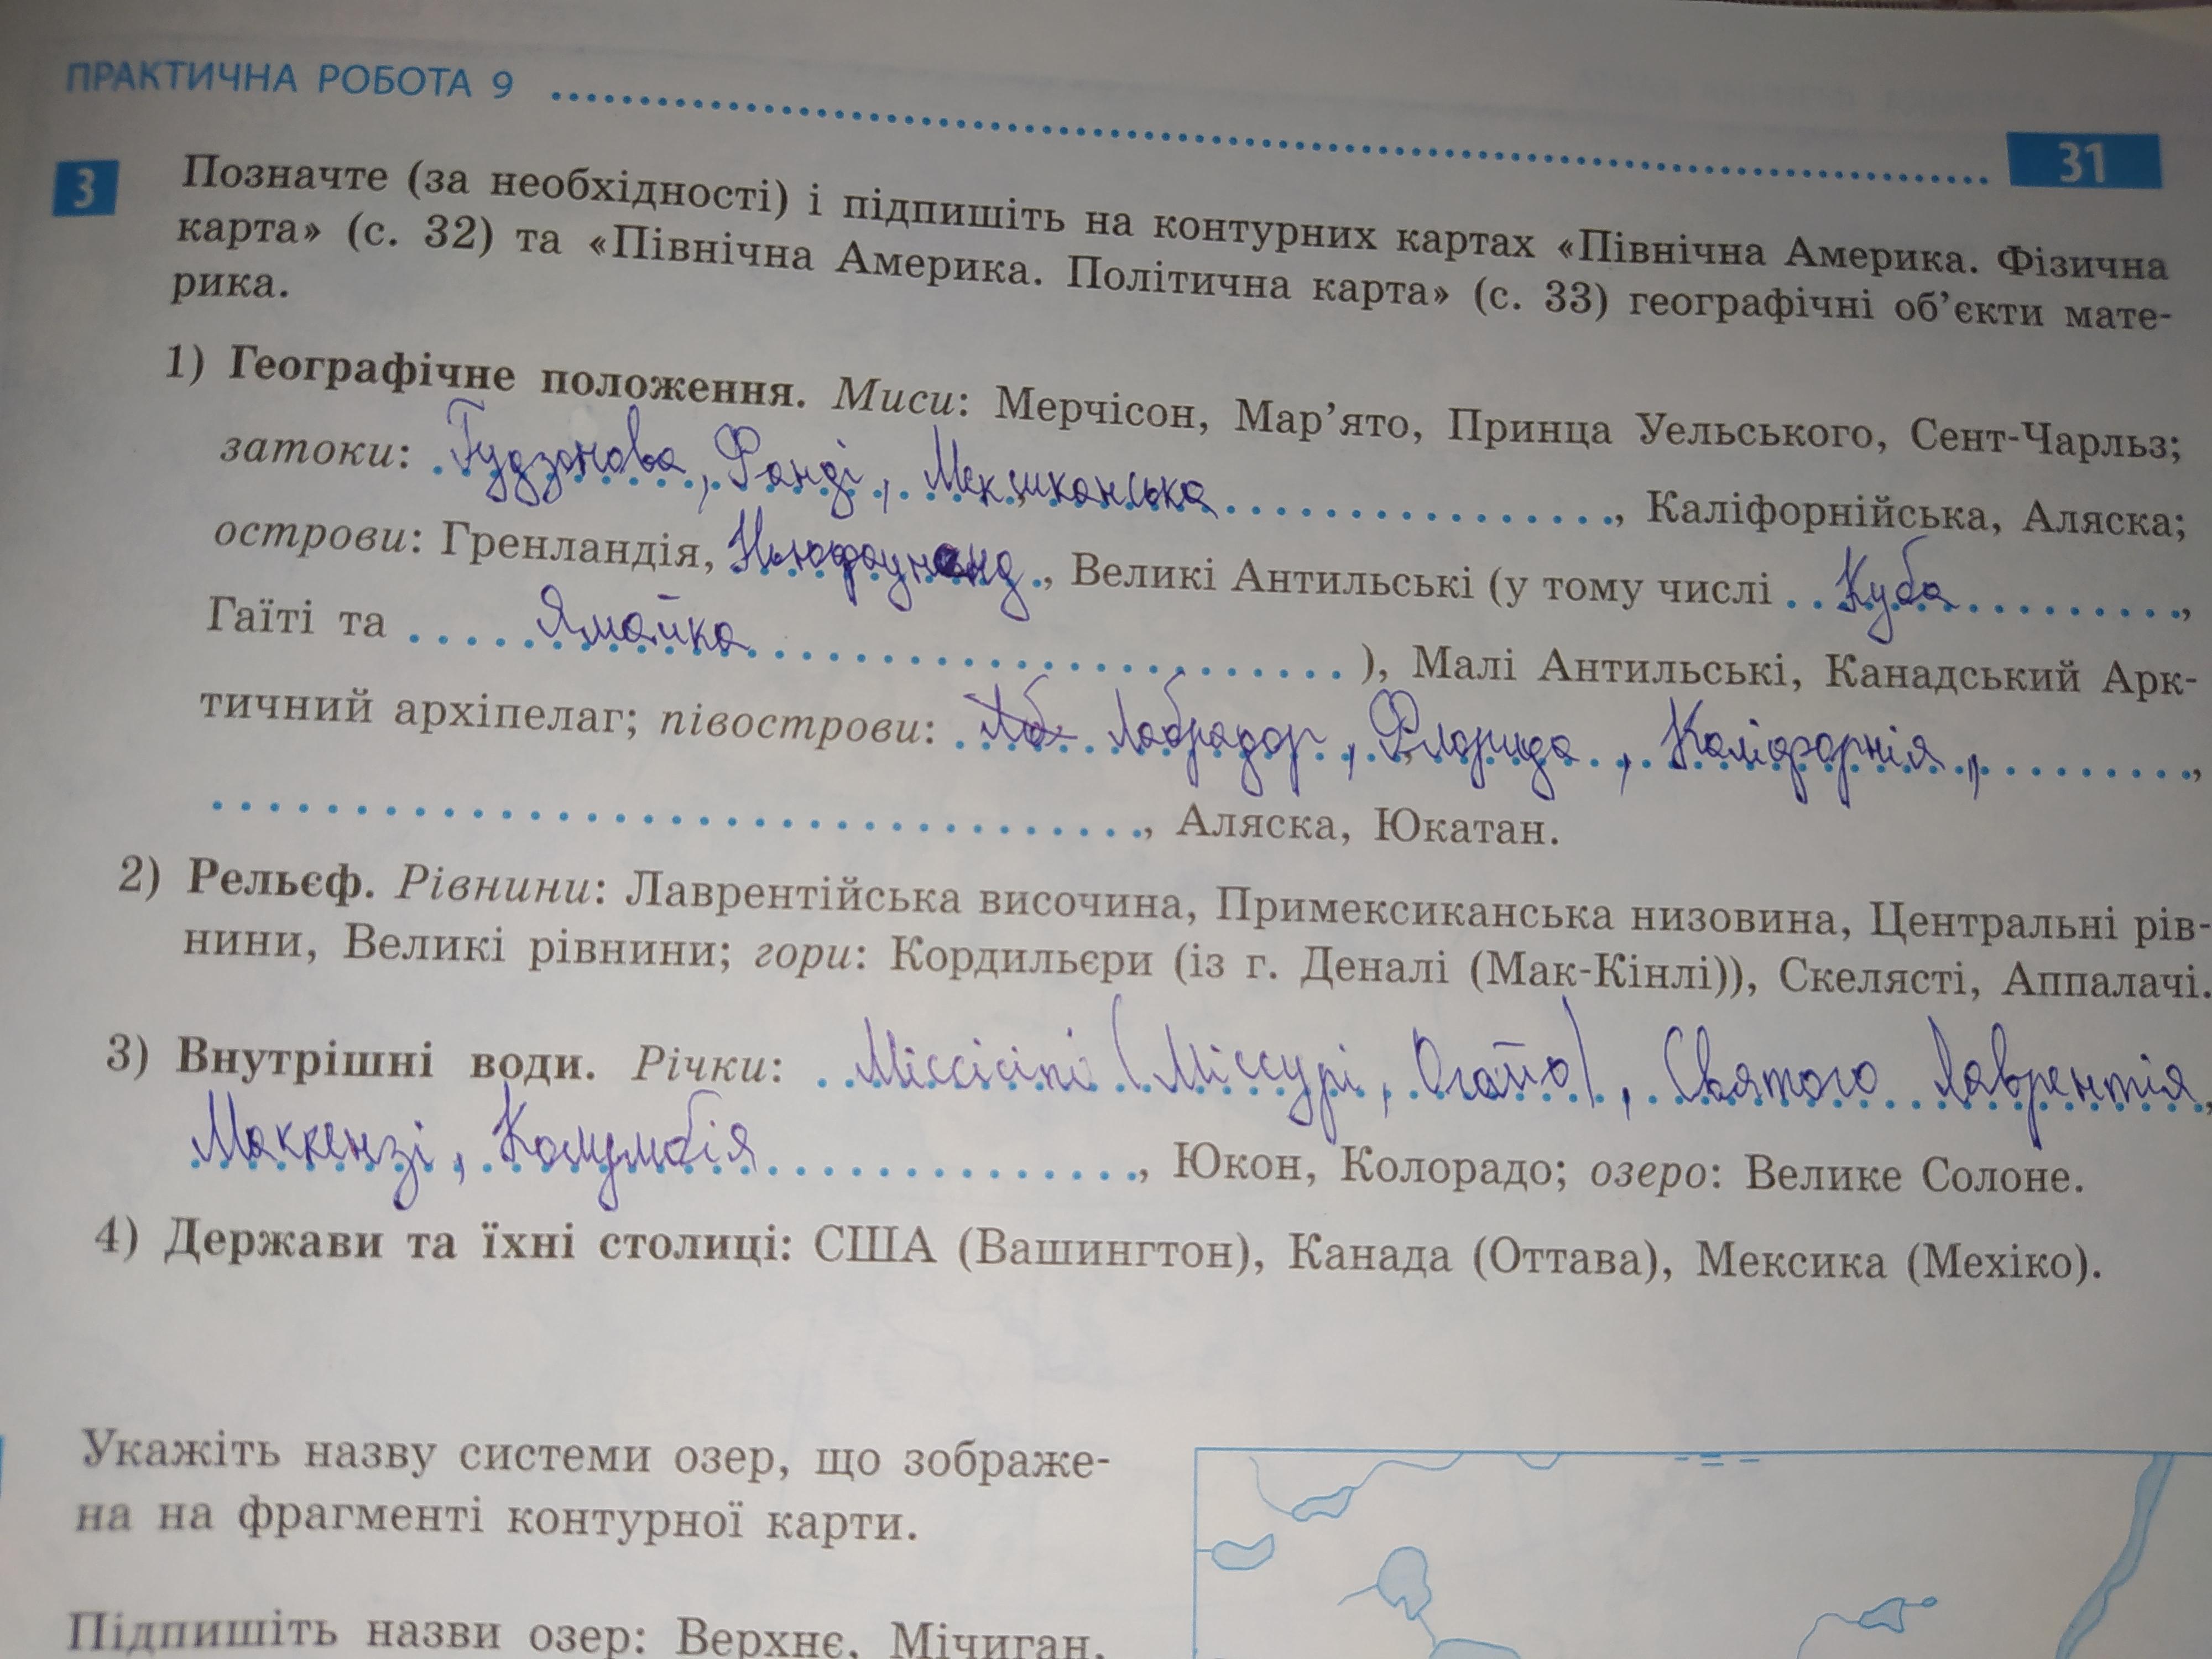 ПРАКТИЧНА РОБОТА 9
31
3 Позначте (за необхідності) і підпишіть на контурних картах «Північна Америка. Фізична
карта» (с. 32) та «Північна Америка. Політична карта» (с. 33) географічні об’єкти мате-
рика.
1) Географічне положення. Миси: Мерчісон, Мар’ято, Принца Уельського, Сент-Чарльз;
затоки: Гудзонова, Фанді, Мексиканська, Каліфорнійська, Аляска;
острови: Гренландія, , Великі Антильські (у тому числі Куба,
Гаїті та Ямайка), Малі Антильські, Канадський Арк-
тичний архіпелаг; півострови: Лабрадор, Флорида, Каліфорнія,
, Аляска, Юкатан.
2) Рельєф. Рівнини: Лаврентійська височина, Примексиканська низовина, Центральні рів-
нини, Великі рівнини; гори: Кордильєри (із г. Деналі (Мак-Кінлі)), Скелясті, Аппалачі.
3) Внутрішні води. Річки: Міссісіпі (Міссурі, Огайо), Святого Лаврентія,
Маккензі, Колумбія, Юкон, Колорадо; озеро: Велике Солоне.
4) Держави та їхні столиці: США (Вашингтон), Канада (Оттава), Мексика (Мехіко).
Укажіть назву системи озер, що зображе-
на на фрагменті контурної карти.
Підпишіть назви озер: Верхнє, Мічиган,